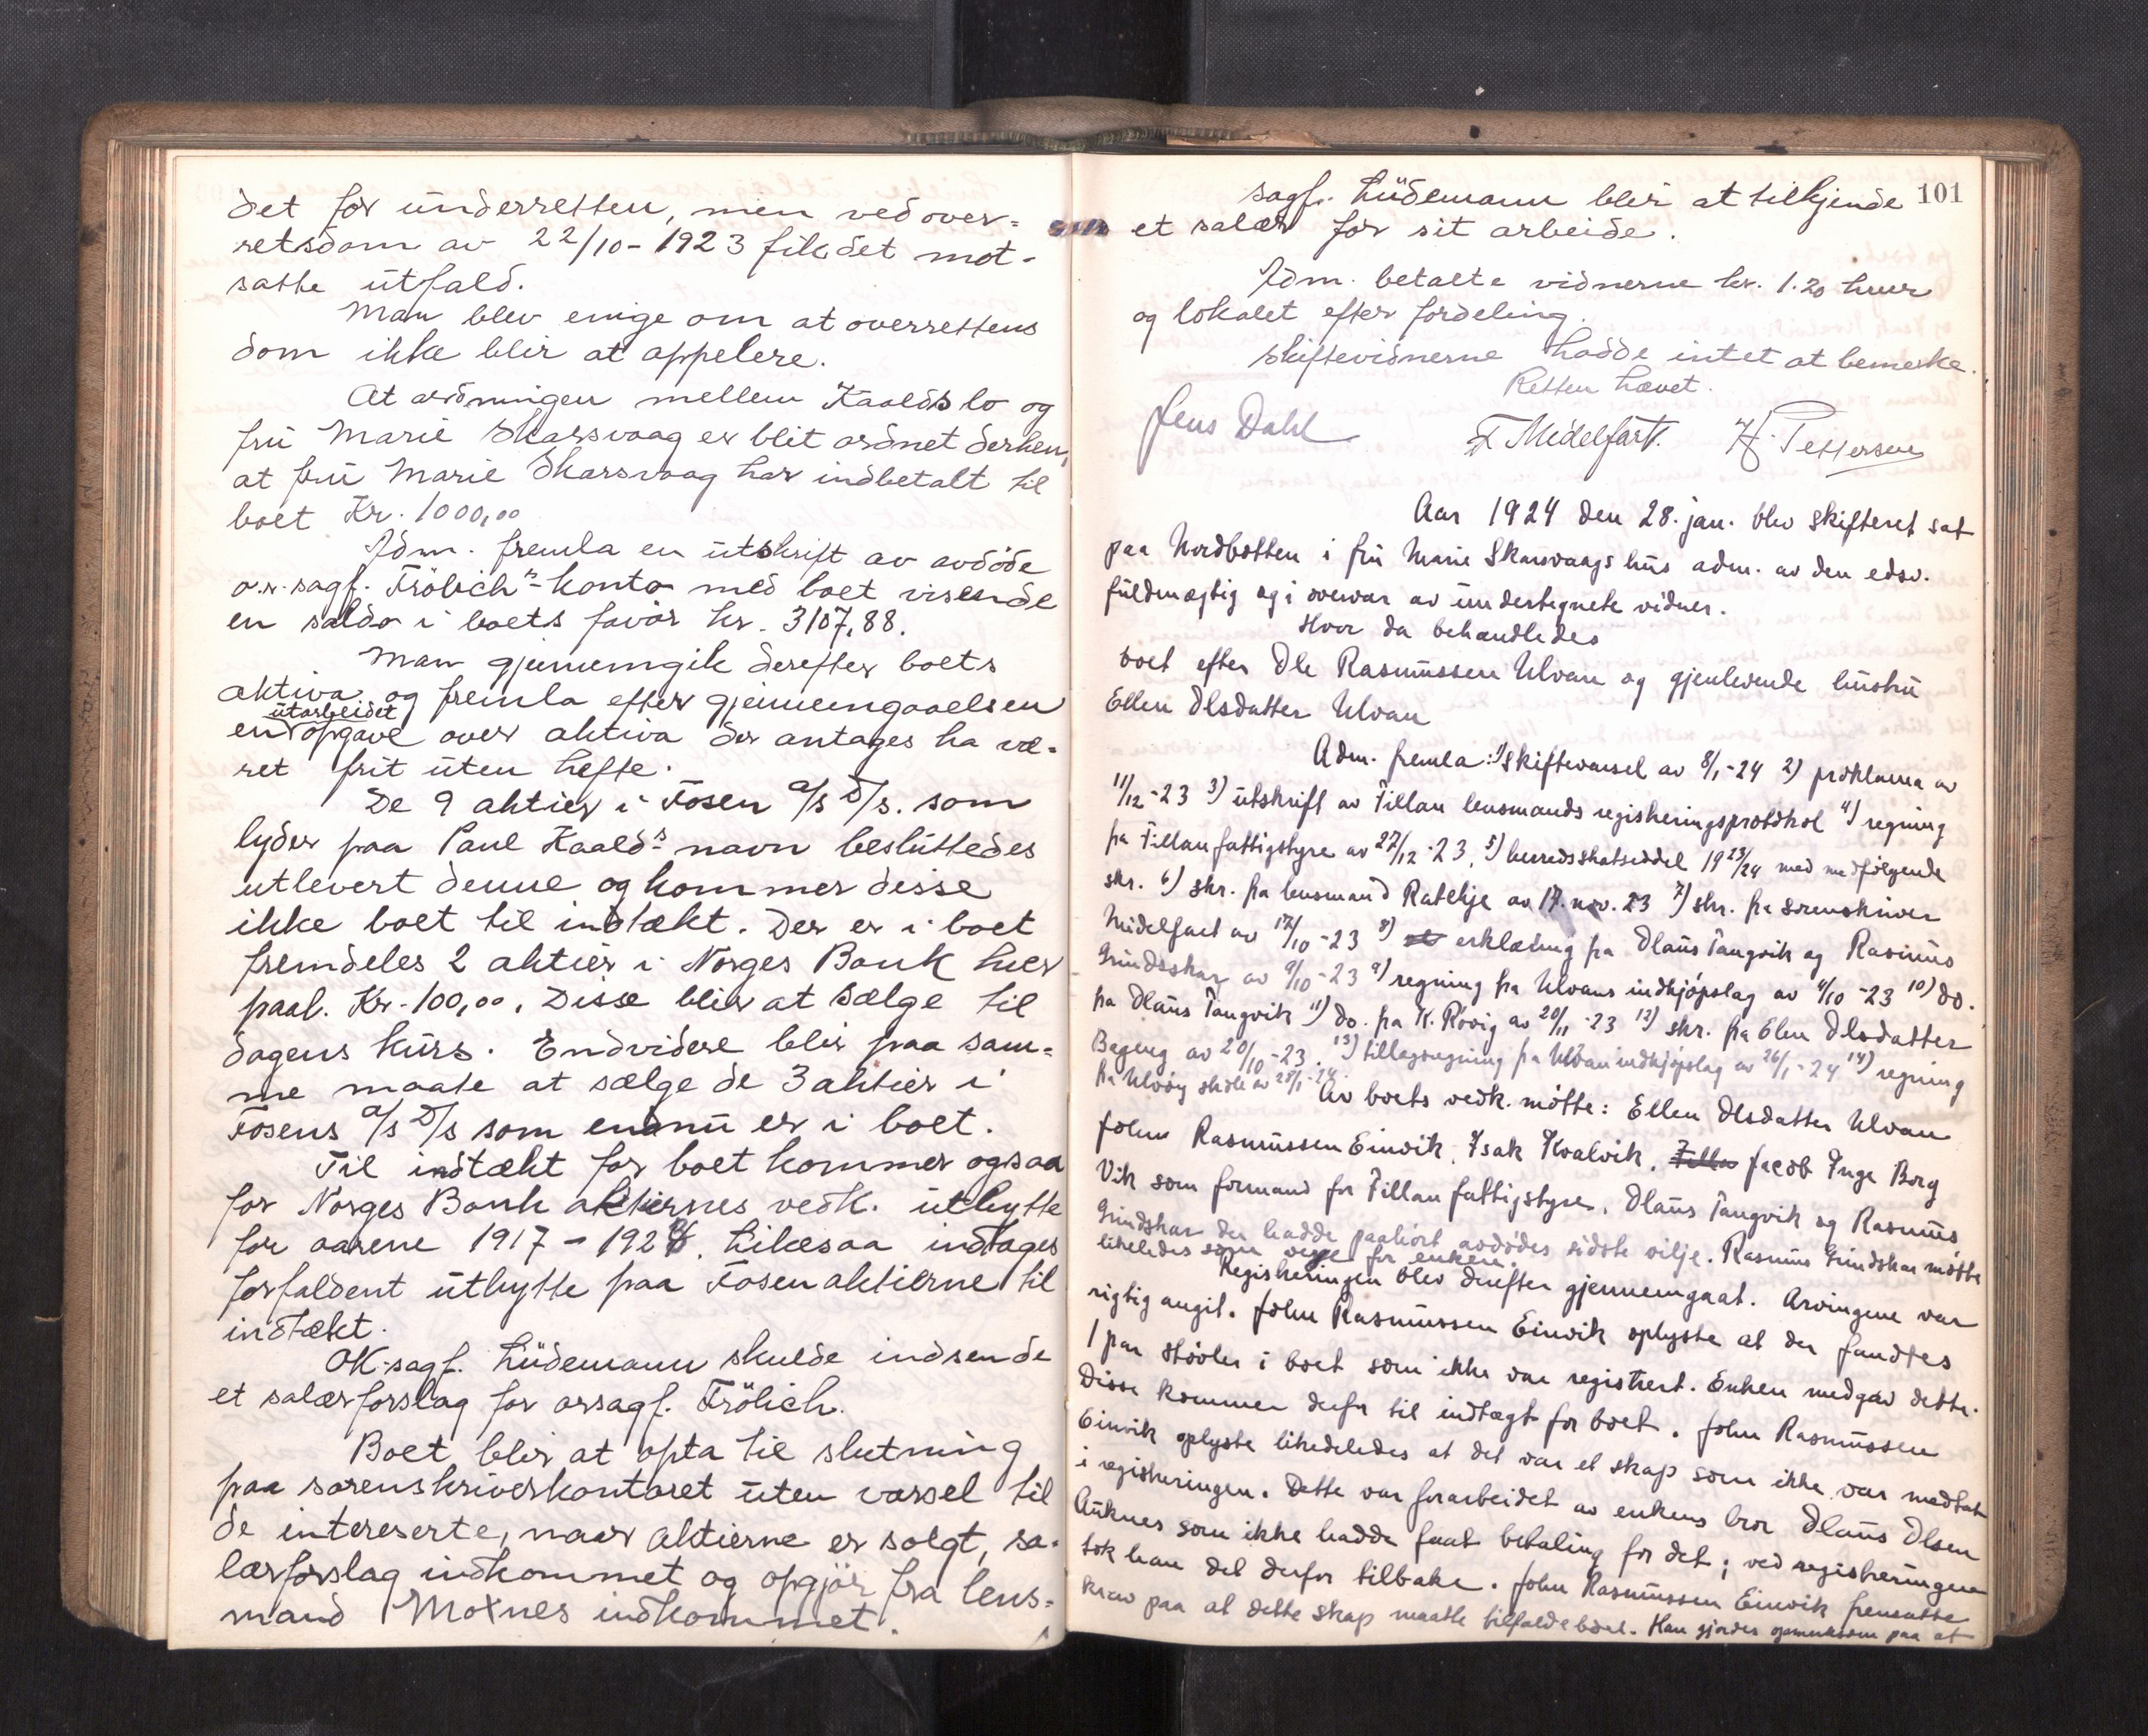 det for underretten, men ved over=
retsdom av 22/10-1923 fik det mot-
satte utfald.
Man blev enige om at overrettens
dom ikke blir at appelere.
At ordningen mellem Kaalds bo og
fru Marie Skarsvaag er blit ordnet derhen,
at fru Marie Skarsvaag har indbetalt til
boet Kr. 1000,00
Adm. fremla en utskrift av avdöde
o.r.sagf. Frölich's konto med boet visende
en saldo i boets favör kr. 3107,88.
Man gjennemgik derefter boets
aktiva og fremla efter gjennemgaaelsen
en utarbeidet opgave over aktiva der antages ha væ-
ret frit uten hefte.
De 9 aktier i Fosen a/s D/s. som
lyder paa Paul Kaald's navn besluttedes
utlevert denne og kommer disse
ikke boet til indtækt. Der er i boet
fremdeles 2 aktier i Norges Bank hver
paal. Kr. 100,00. Disse blir at sælge til
dagens kurs. Endvidere blir paa sam=
me maate at sælge de 3 aktier i
Fosens a/s D/s som endnu er i boet.
Til indtækt for boet kommer ogsaa
for Norges Bank aktiernes vedk. utbytte
for aarene 1917 - 192. Likesaa indtages
forfaldent utbytte paa Fosenaktierne til
indtækt.
OR-sagf. Lüdemann skulde indsende
et salærforslag for orsagf. Frölich.
Boet blir at opta til slutning
paa sorenskriverkontoret uten varsel til
de intereserte, naar aktierne er solgt, sa-
lærforslag indkommet og opgjör fra lens=
mand Moxnes indkommet.
101
sagf. Lüdemann blir at tilkjende
et salær for sit arbeide.
Adm. betalte vidnerne kr. 1.20 hver
og lokalet efter fordeling.
Skiftevidnerne hadde intet at bemerke.
Retten hævet.
Jens Dahl F. Midelfart. H. Pettersen
Aar 1924 den 28. jan. blev skifteret sat
paa Nordbotten i fru Marie Skarsvaags hus adm. av den edsv.
fuldmægtig og i overvær av undertegnete vidner.
Hvor da behandledes
boet efter Ole Rasmussen Ulvan og gjenlevende hustru
Ellen Olsdatter Ulvan
Adm. fremla: 1) Skiftevarsel av 8/1-24 2) proklama av
11/12-23 3) utskrift av Fillan lensmands registreringsprotokol 4) regning
fra Fillan fattigstyre av 27/12-23, 5) herredsskatseddel 19 23/24 med medfölgende
skr. 6) skr. fra lensmand Ratchje av 17. nov. 23 7) skr. fra sorenskriver
Midelfart av 17/10-23 8) erklæring fra Olaus Tangvik og Rasmus
Grindskar av 9/10-23 9) regning fra Ulvans indkjöpslag av 4/10-23 10) do.
fra Olaus Tangvik 11) do. fra K. Rövig av 20/11-23 12) skr. fra Elen Olsdatter
Bageng av 20/10-23. 13) tillægsregning fra Ulvan indkjöpslag av 26/1-24 14) regning
fra Ulvöy skole av 28/1-24.
Av boets vedk. mötte: Ellen Olsdatter Ulvan
John Rasmussen Einvik, Isak Kvalvik, Jacob Inge Borg
Vik som formand for Fillan fattigstyre, Olaus Tangvik og Rasmus
Grindskar der hadde paahört avdödes sidste vilje. Rasmus Grindskar mötte
likeledes som verge for enken.
Registreringen blev derefter gjennemgaat. Arvingene var
rigtig angit. John Rasmussen Einvik oplyste at der fandtes
1 par stövler i boet som ikke var registrert. Enken medgav dette.
Disse kommer derfor til indtægt for boet. John Rasmussen
Einvik oplyste likedeledes at det var et skap som ikke var medtat
i registreringen. Dette var forarbeidet av enkens bror Olaus Olsen
Auknes som ikke hadde faat betaling for det; ved registreringen
tok han det derfor tilbake. John Rasmussen Einvik fremsatte
krav paa at dette skap maatte tilfalde boet. Han gjordes opmerksom paa at